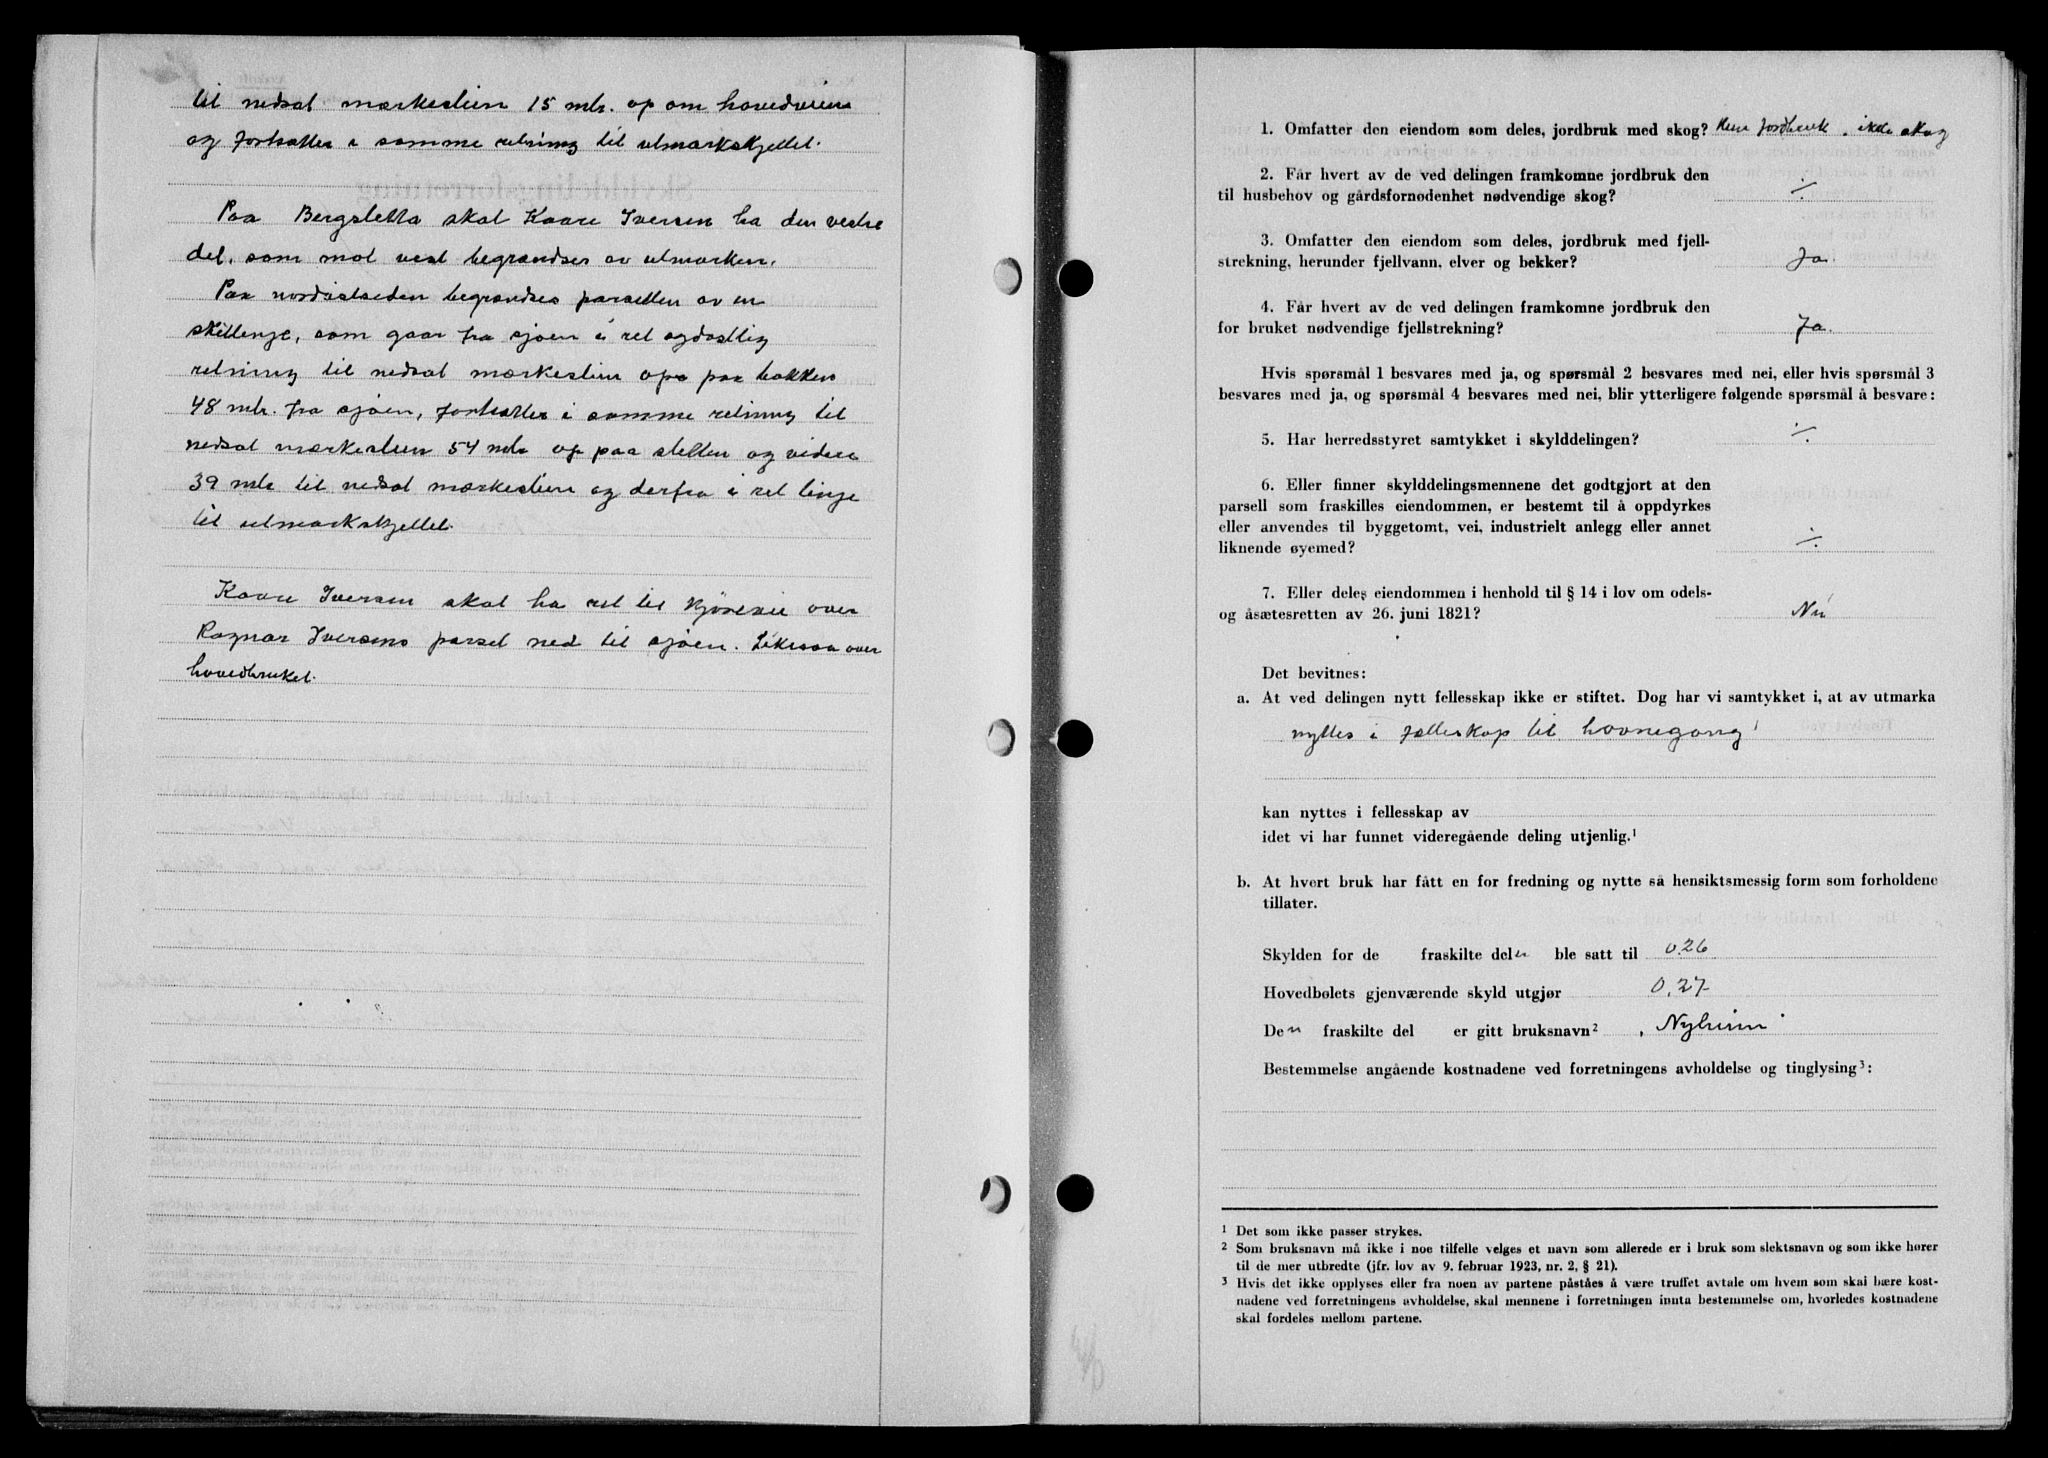 til nedsat merkesten 15 mtr. op om hovedveien
og fortsatter i samme retning til utmarkskjellet.
Paa Bergsletta skal Kaare Iversen ha den vestre
del, som mot vest begrændses av utmarken.
Paa nordöstsiden begrændses parsellen av en
skillinge, som gaar fra sjöen i ret
retning til nedsat merkesten op paa bakken
48 mtr. fra sjöen, fortsatter i samme retning til
nedsat merkesten 54 mtr op paa sletten og videre
39 mtr til nedsat merkesten og derfra i ret linje
til utmarkskjellet.
Kaare Iversen skal ha ret til kjörevei over
Ragnar Iversens parsel ned til sjöen. Likesaa over
hovedbruket.
1. Omfatter den eiendom som deles, jordbruk med skog? Kun jordbruk, ikke skog
2. Får hvert av de ved delingen framkomne jordbruk den
til husbehov og gårdsfornødenhet nødvendige skog? ÷
3. Omfatter den eiendom som deles, jordbruk med fjell-
strekning, herunder fjellvann, elver og bekker? Ja
4. Får hvert av de ved delingen framkomne jordbruk den
for bruket nødvendige fjellstrekning? Ja.
Hvis spørsmål 1 besvares med ja, og spørsmål 2 besvares med nei, eller hvis spørsmål 3
besvares med ja, og spørsmål 4 besvares med nei, blir ytterligere følgende spørsmål å besvare:
5. Har herredsstyret samtykket i skylddelingen? ÷
6. Eller finner skylddelingsmennene det godtgjort at den
parsell som fraskilles eiendommen, er bestemt til å oppdyrkes
eller anvendes til byggetomt, vei, industrielt anlegg eller annet
liknende øyemed? ÷
7. Eller deles eiendommen i henhold til § 14 i lov om odels-
og åsætesretten av 26. juni 1821? Nei
Det bevitnes:
a. At ved delingen nytt fellesskap ikke er stiftet. Dog har vi samtykket i, at av utmarka
nyttes i fælleskap til havnegang
kan nyttes i fellesskap av
idet vi har funnet videregående deling utjenlig.¹
b. At hvert bruk har fått en for fredning og nytte så hensiktsmessig form som forholdene
tillater.
Skylden for de fraskilte delen ble satt til 0.26
Hovedbølets gjenværende skyld utgjør 0.27
Den fraskilte del er gitt bruksnavn² Nyheim
Bestemmelse angående kostnadene ved forretningens avholdelse og tinglysing³:
¹ Det som ikke passer strykes.
² Som bruksnavn må ikke i noe tilfelle velges et navn som allerede er i bruk som slektsnavn og som ikke hører
til de mer utbredte (jfr. lov av 9. februar 1923, nr. 2, § 21).
³ Hvis det ikke opplyses eller fra noen av partene påståes å være truffet avtale om hvem som skal bære kost-
nadene ved forretningens avholdelse, skal mennene i forretningen innta bestemmelse om, hvorledes kostnadene
skal fordeles mellom partene.